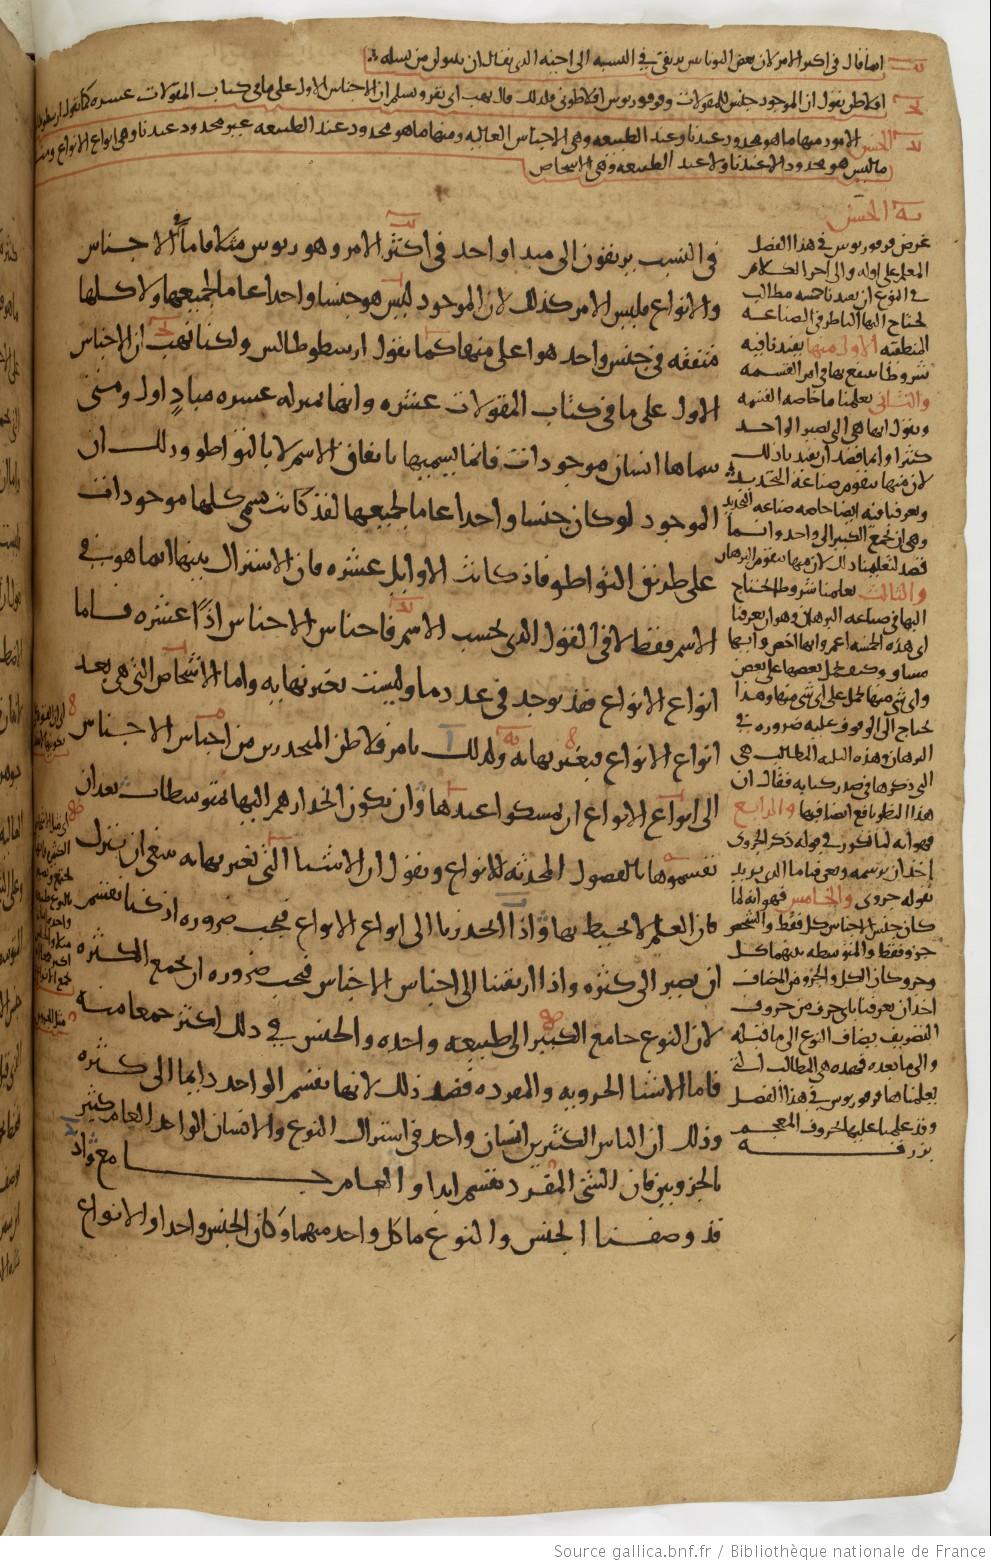 انما قال في اكثر الامر لان بعض النـاس يرتقي في النسبه الى
افلاطن يقول ان الموجود جنس للمقولات وفرفوريوس فلذلك قال نهب اي نقر ونسلم ان الاجناس الاول على ما في كتاب المقولات عشره كما يقول ارسطو
الحسن الامور منها ما هو محدود عندنا وعند الطبيعه وهي الاجناس العاليه ومنها ما هو محدود عند الطبيعه غير محدود عندنا وهي انواع الانواع ومنها
ما ليس هو محدود لا عندنا ولا عند الطبيعه وهي الاشخاص
في النسب يرتقون الى مبدا واحد في اكثر الامر وهو زيوس مثلا فاما في الاجناس
والانواع فليس الامر كذلك لان الموجود ليس هو جنسا واحدا عاما لجميعها ولا كلها
متفقه في جنس واحد هو اعلى منها كما يقول ارسطوطالس ولكنا نهب ان الاجناس
الاول على ما في كتاب المقولات عشره وانها بمنزله عشره مبادٍ اول ومتى
سماها انسان موجودات فانما يسميها باتفاق الاسم لا بالتواطو وذلك ان
الموجود لو كان جنسا واحدا عاما لجميعها لقد كانت تسمى كلها موجودات
على طريق التواطو فاذ كانت الاوايل عشره فان الاشتراك بينها انما هو في
الاسم فقط لا في القول الذى بحسب الاسم فاجناس الاجناس اذًا عشره فاما
انواع الانواع فقد يوجد في عدد ما وليست بغير نهايه واما الاشخاص التي هي بعد
انواع الانواع فبغير نهايه ولذلك يامر فلاطن المنحدرين من اجناس الاجناس
الى انواع الانواع ان يمسكوا عندها وان يكون انحدارهم اليها بمتوسطات بعد ان
يقسموها بالفصول المحدثه للانواع ويقول ان الاشيا التي بغير نهايه ينبغي ان تترك
فان العلم لا يحيط بها واذا انحدرنا الى انواع الانواع فيجب ضروره اذ كنا نقسم
ان نصير الى كثره واذا ارتقينا الى اجناس الاجناس فيجب ضروره ان نجمع الكثره
لان النوع جامع الكثير الى طبيعه واحده والجنس في ذلك اكثر جمعا منه
فاما الاشيا الجزويه والمفرده فضد ذلك لانها تقسم الواحد دايما الى كثره
وذلك ان الناس الكثيرين انسان واحد في اشتراك النوع والانسان الواحد العام كثير
بالجزويين فان الشي المفرد يقسم ابدا والعام جـــامع واذ
قد وصفنا الجنس والنوع ما كل واحد منهما وكان الجنس واحدا والانواع
الحسن
غرض فرفوريوس في هذا الفصل
المعلم على اوله والى اخر الكلام
في النوع ان يفيدنا خمسه مطالب
يحتاج اليها الناظر في الصناعه
المنطقيه الاول منها يفيدنا فيه
شروطا ننتفع بها في امر القسمه
والثاني يعلمنا ما خاصه القسمه
ويقول انها هي التي تصير الواحد
كثيرا وانما قصد ان يفيدنا ذلك
لان منها تتقوم صناعة التحديد
ويعرفنا فيه ايضا خاصه صناعه التحديد
وهي ان تجمع الكثير الى واحد وانما
قصد لتعليمنا ذلك لان منها تتقوم البرهان
والثالث يعلمنا شروطا نحتاج
اليها في صناعه البرهان وهو ان يعرفنا
اي هذه الخمسه اعم وايها اخص وايها
مساو وكيف تحمل بعضها على بعض
واي شي منها يحمل على اي شي منها وهذا
يحتاج الى الوقوف عليه ضروره في
البرهان وهذه الثلثه المطالب هي
التي ذكرها في صدر كتابه فقال ان
هذا النظر نافع ايضا فيها والرابع
فهو انه لما تكرر في قوله ذكر الجزوى
اخذ ان يرسمه ويعرفنا ما الذي يريد
بقوله جزوى والخامس فهو انه لما
كان جنس الاجناس كل فقط والشخص
جزو فقط والمتوسطه بينهما كل
وجزو وكان الكل والجزو من المضاف
اخذ ان يعرفنا باي حرف من حروف
التصريف يضاف النوع الى ما قبله
والى ما بعده فهذه هي المطالب التي
يعلمناها فرفوريوس في هذا الفصل
وقد علمنا عليها بحروف المعجم
Source gallica.bnf.fr / Bibliothèque nationale de France